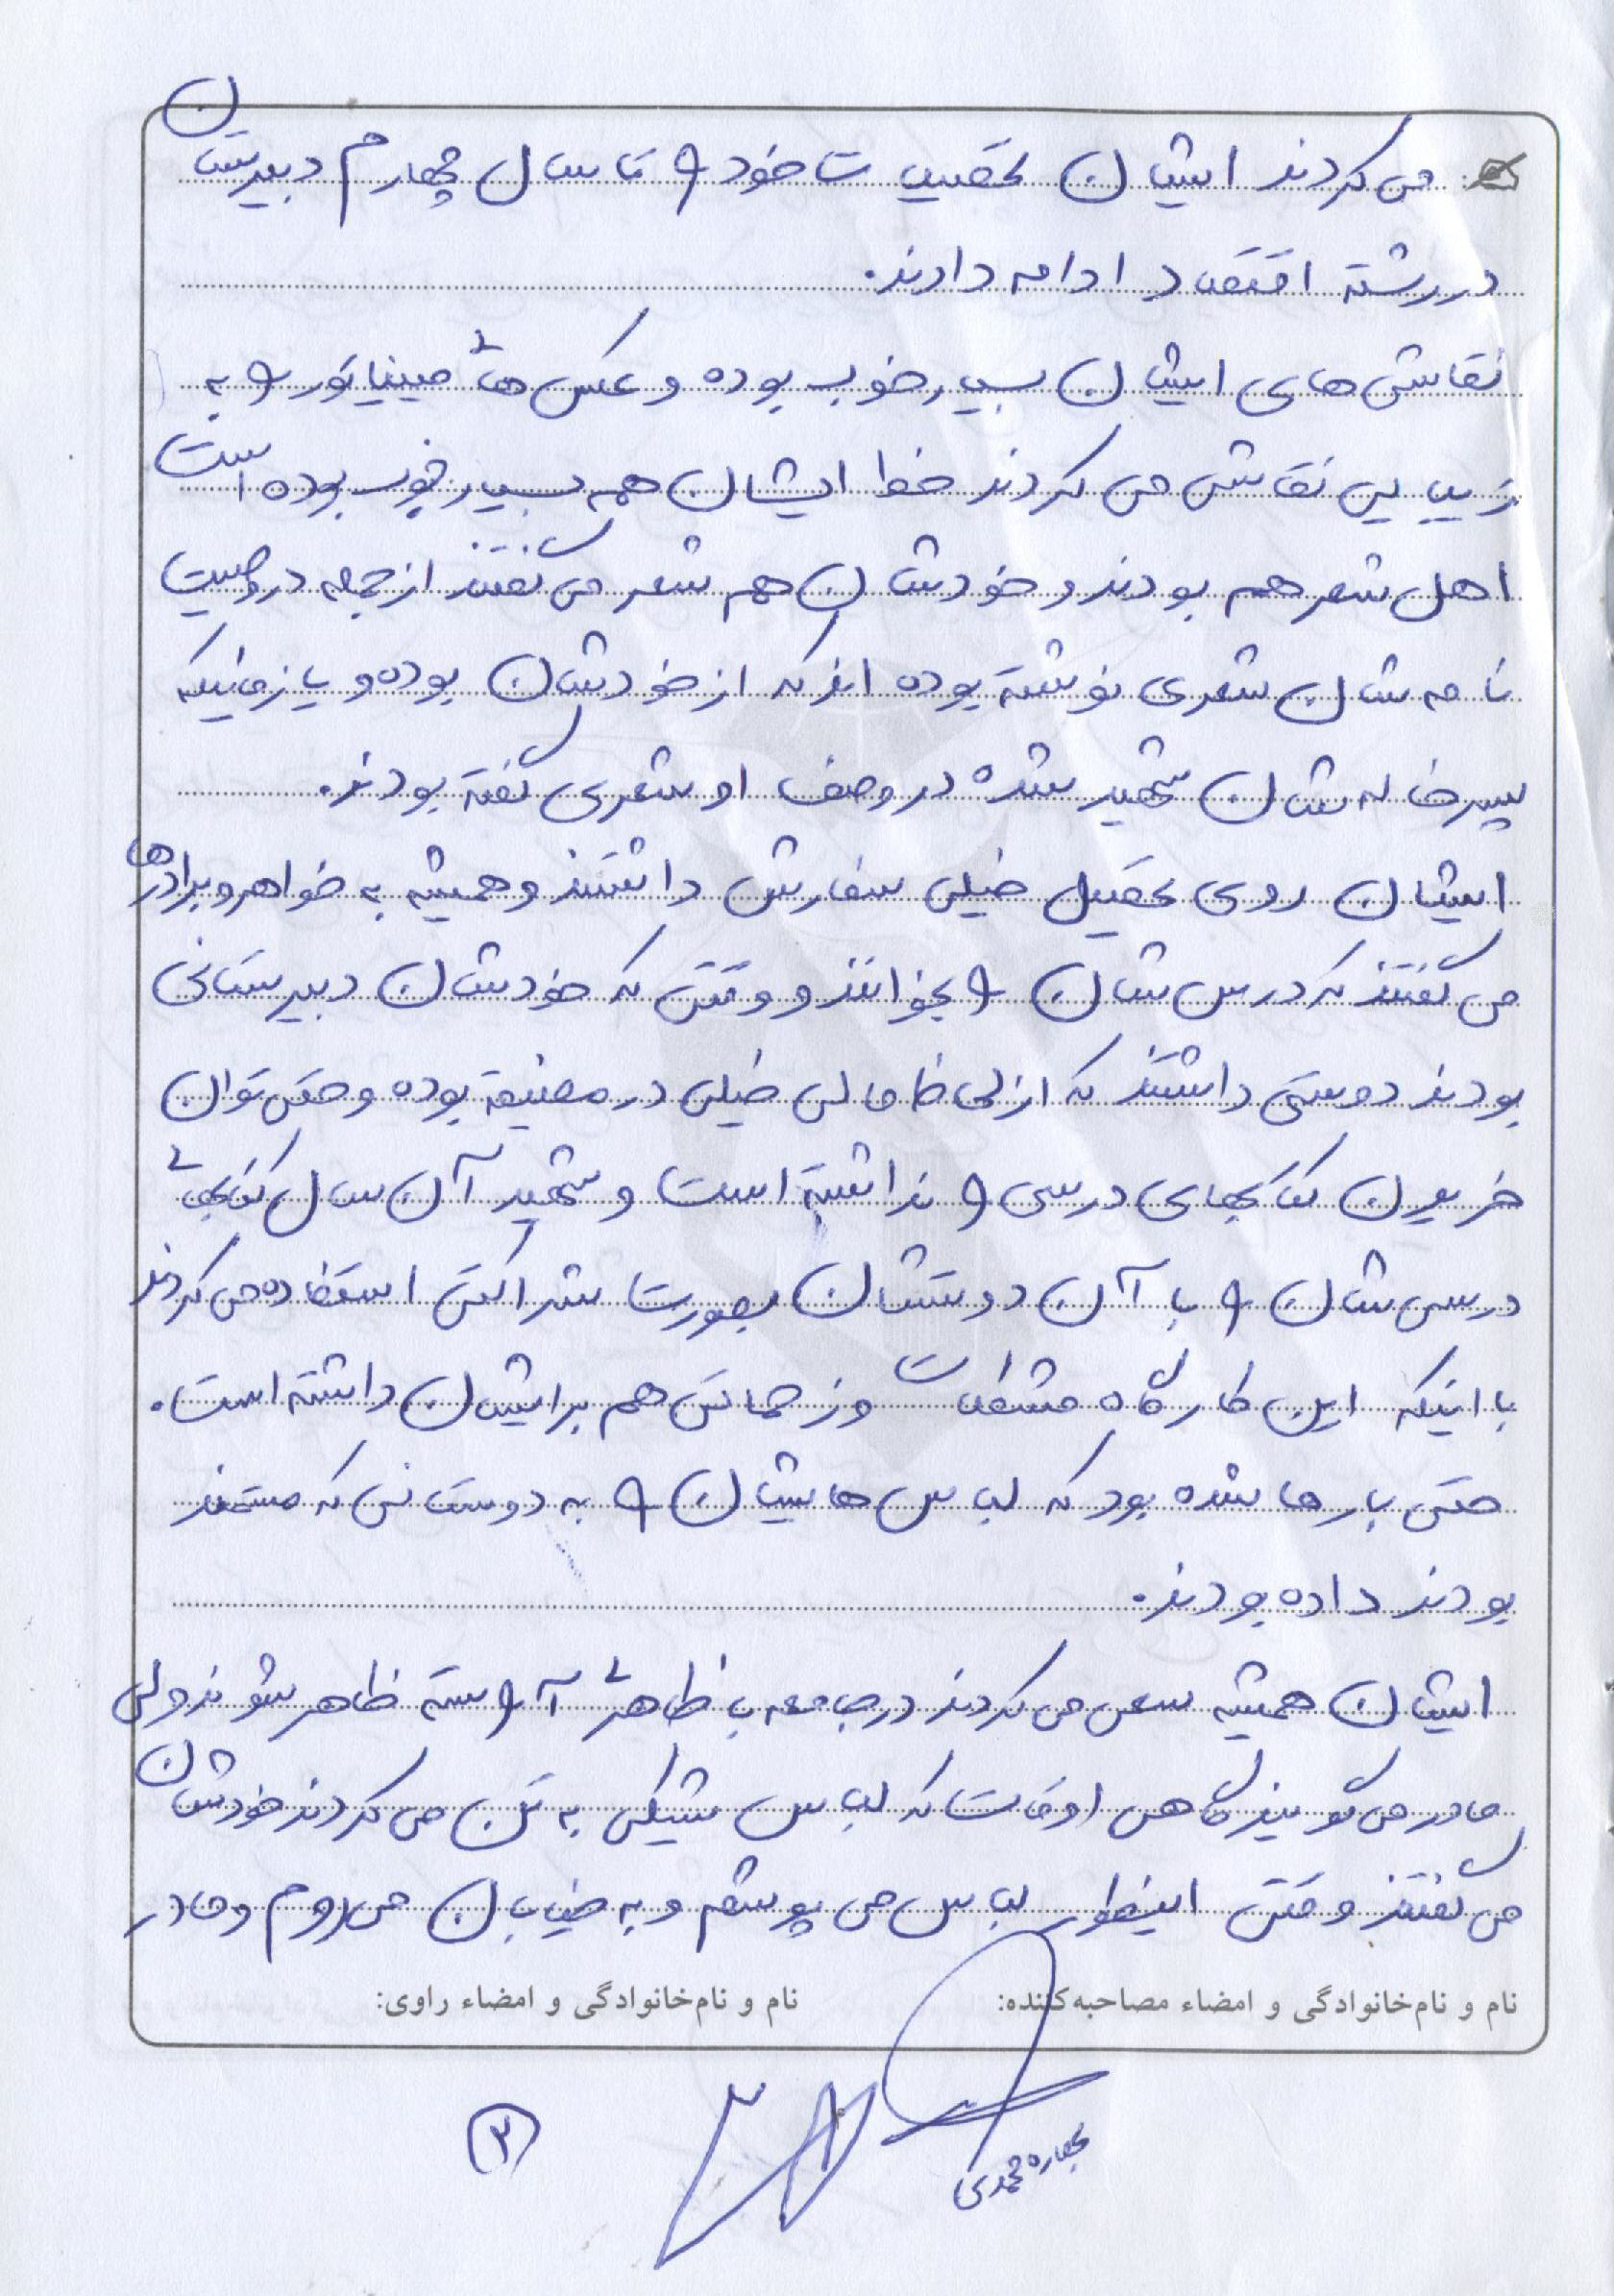 می کردند ایشان تحصیلات خود را تا سال چهارم دبیرستان
در رشته اقتصاد ادامه دادند.
نقاشی های ایشان بسیار خوب بوده و عکس های مینیاتور را به
زیبایی نقاشی می کردند خط ایشان هم بسیار خوب بوده است
اهل شعر هم بودند و خودشان هم شعر می گفتند از جمله در وصیت
نامه شان شعری نوشته بوده اند که از خودشان بوده و یا زمانیکه
پسرخاله شان شهید شده در وصف او شعری گفته بودند.
ایشان روی تحصیل خیلی سفارش داشتند و همیشه به خواهر و برادرها
می گفتند که درس شان را بخوانند و وقتی که خودشان دبیرستانی
بودند دوستی داشتند که از لحاظ مالی خیلی در مضیقه بوده و حتی توان
خریدن کتابهای درسی را نداشته است و شهید آن سال کتابهای
درسی شان را با آن دوستشان بصورت شراکتی استفاده می کردند
با اینکه این کار گاه مشکلات و زحماتی هم برایشان داشته است.
حتی بارها شده بود که لباس هایشان را به دوستانی که مستمند
بودند داده بودند.
ایشان همیشه سعی می کردند در جامعه با ظاهری آراسته ظاهر شوند ولی
مادر می گویند گاهی اوقات که لباس شیکی به تن می کردند خودشان
می گفتند وقتی اینطور لباس می پوشم و به خیابان می روم و مادر
نام و نام‌خانوادگی و امضاء مصاحبه‌کننده:
نام و نام‌خانوادگی و امضاء راوی:
بهاره محمدی
۲